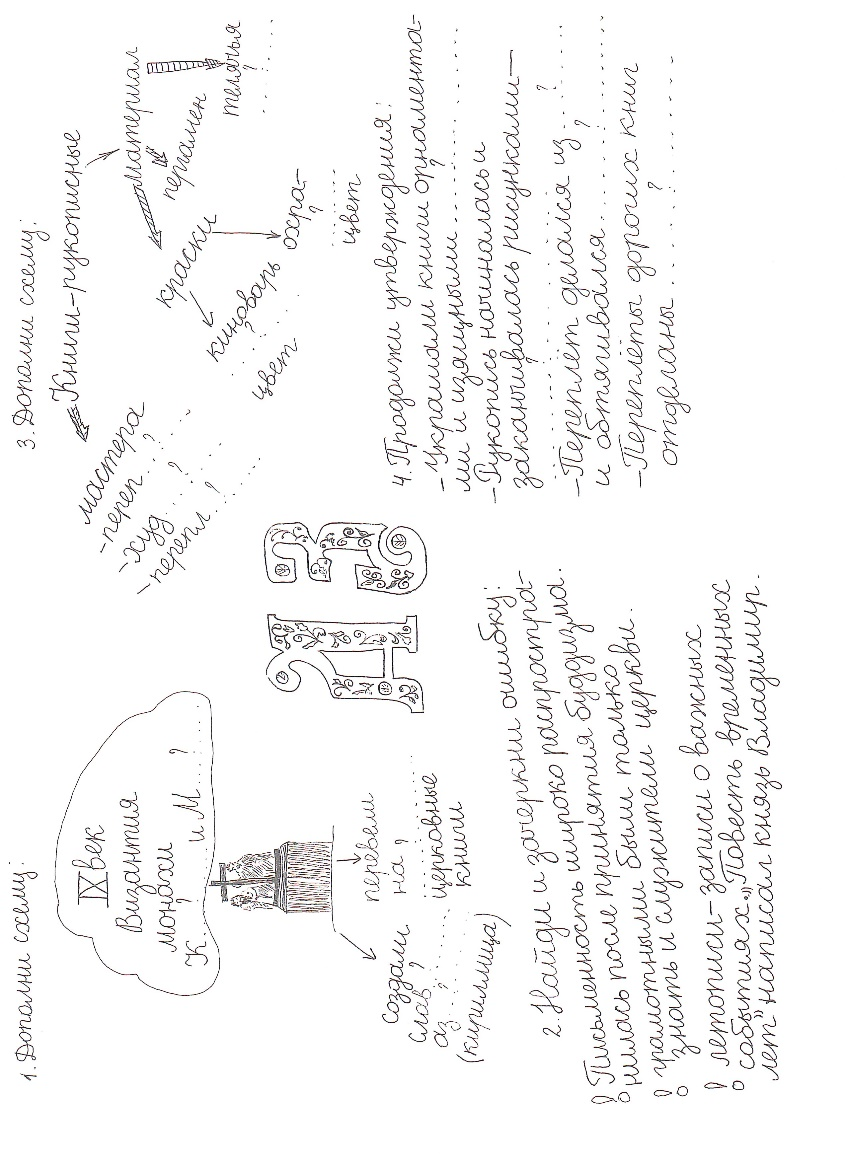 1. Дополни схему:
IX век
Византия
монахи
К ...?... и М ...?...
создали
слав ...?...
аз ......
(кириллица)
перевели
на ...?...
церковные
книги
А Б
2. Найди и зачеркни ошибку:
Письменность широко распростра-
нилась после принятия буддизма.
грамотными были только
знать и служители церкви.
летописи-записи о важных
событиях. „Повесть временных
лет" написал князь Владимир.
3. Дополни схему:
Книги-рукописные
мастера
-переп...?...
-худ...?...
-перепл...?...
краски
киноварь
...?...
цвет
охра-
...?...
цвет
материал
пергамен
телячья
...?...
4. Продолжи утверждения:
-Украшали книги орнамента-
ми и изящными ...?...
-Рукопись начиналась и
заканчивалась рисунками-
...?...
-Переплет делался из ...?...
и обтягивался ...?...
-Переплеты дорогих книг
отделаны ...?...